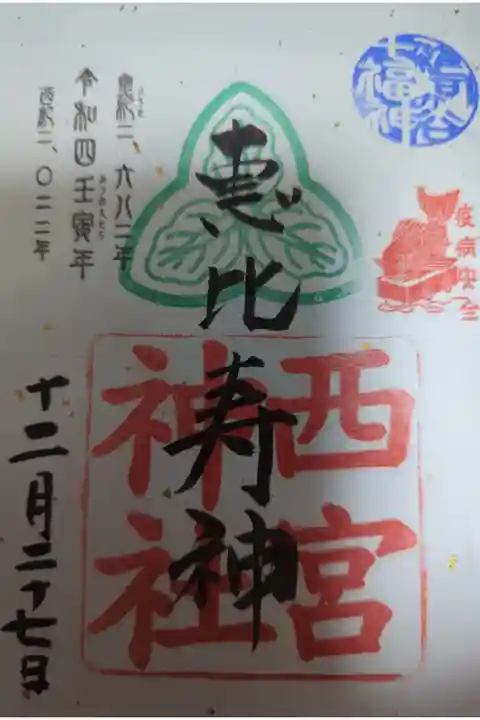 福神
疫病
恵比寿神
西宮
神社
皇紀二、六八二年
令和四壬寅年
西紀二、〇二二年
十二月二十七日